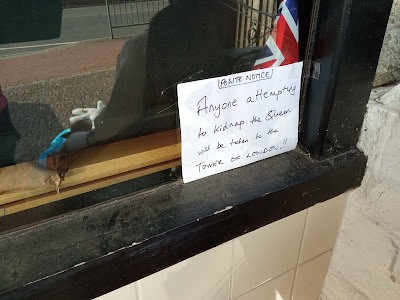 POLITE NOTICE
Anyone attempting
to kidnap the Queen
will be taken to the
TOWER OF LONDON!!